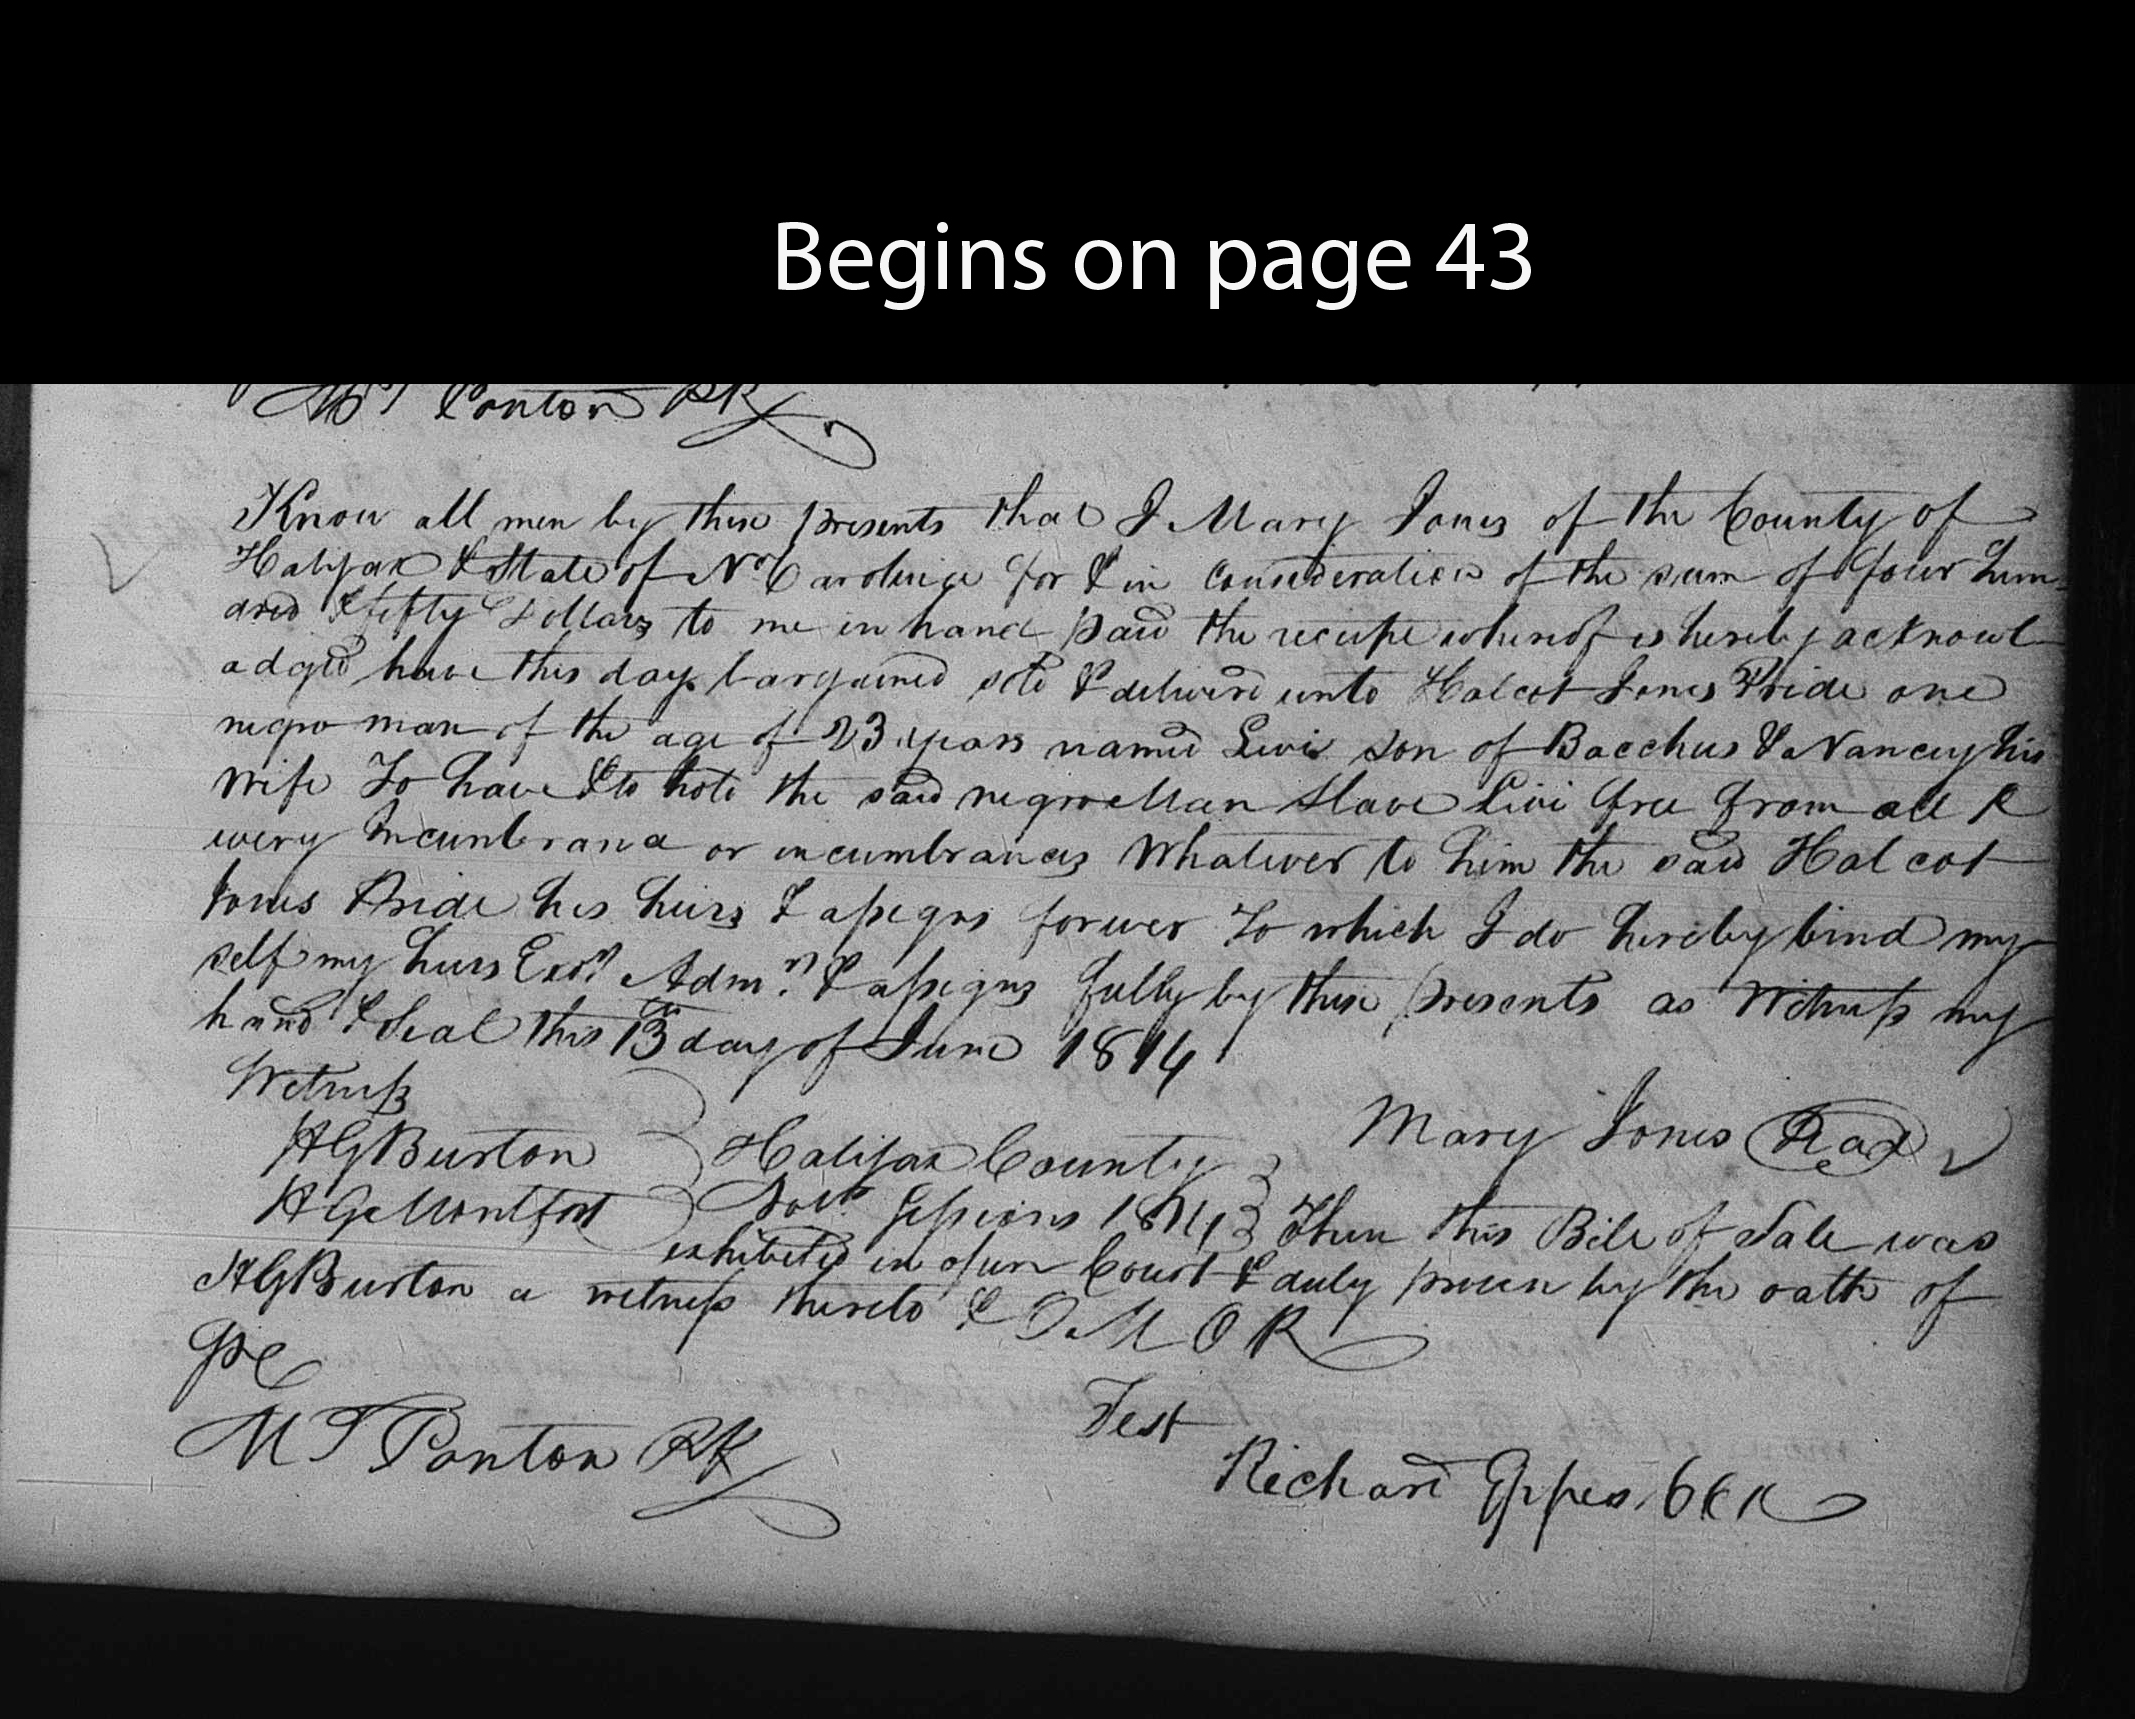 Begins on page 43
Ponton PR
Know all men by these presents that I Mary Jones of the County of
Halifax & State of No Carolina for & in consideration of the sum of four hun
dred & fifty Dollars to me in hand paid the receipt whereof is hereby acknowl
adged have this day bargained sold & deliverd unto Halcot Jones Pride one
negro man of the age of 23 years named Levi son of Bacchus & Nancy his
Wife To have & to hold the said negro Man Slave Levi free from all &
every Incumbrance or incumbrances Whatever to him the said Halcot
Jones Pride his heirs & assigns forever To which I do hereby bind my
self my heirs Exors Admrs & assigns fully by these presents as Witness my
hand & Seal this 13th day of June 1814
Witness
HGBurton
Mary Jones Seal
HGBurton
Halifax County
Novr Sessions 1814 Then this Bill of Sale was
exhibited in open Court & duly proven by the oath of
HGBurton a witness thereto & O M O R
Test
M T Ponton PR
Richard Eppes CCK